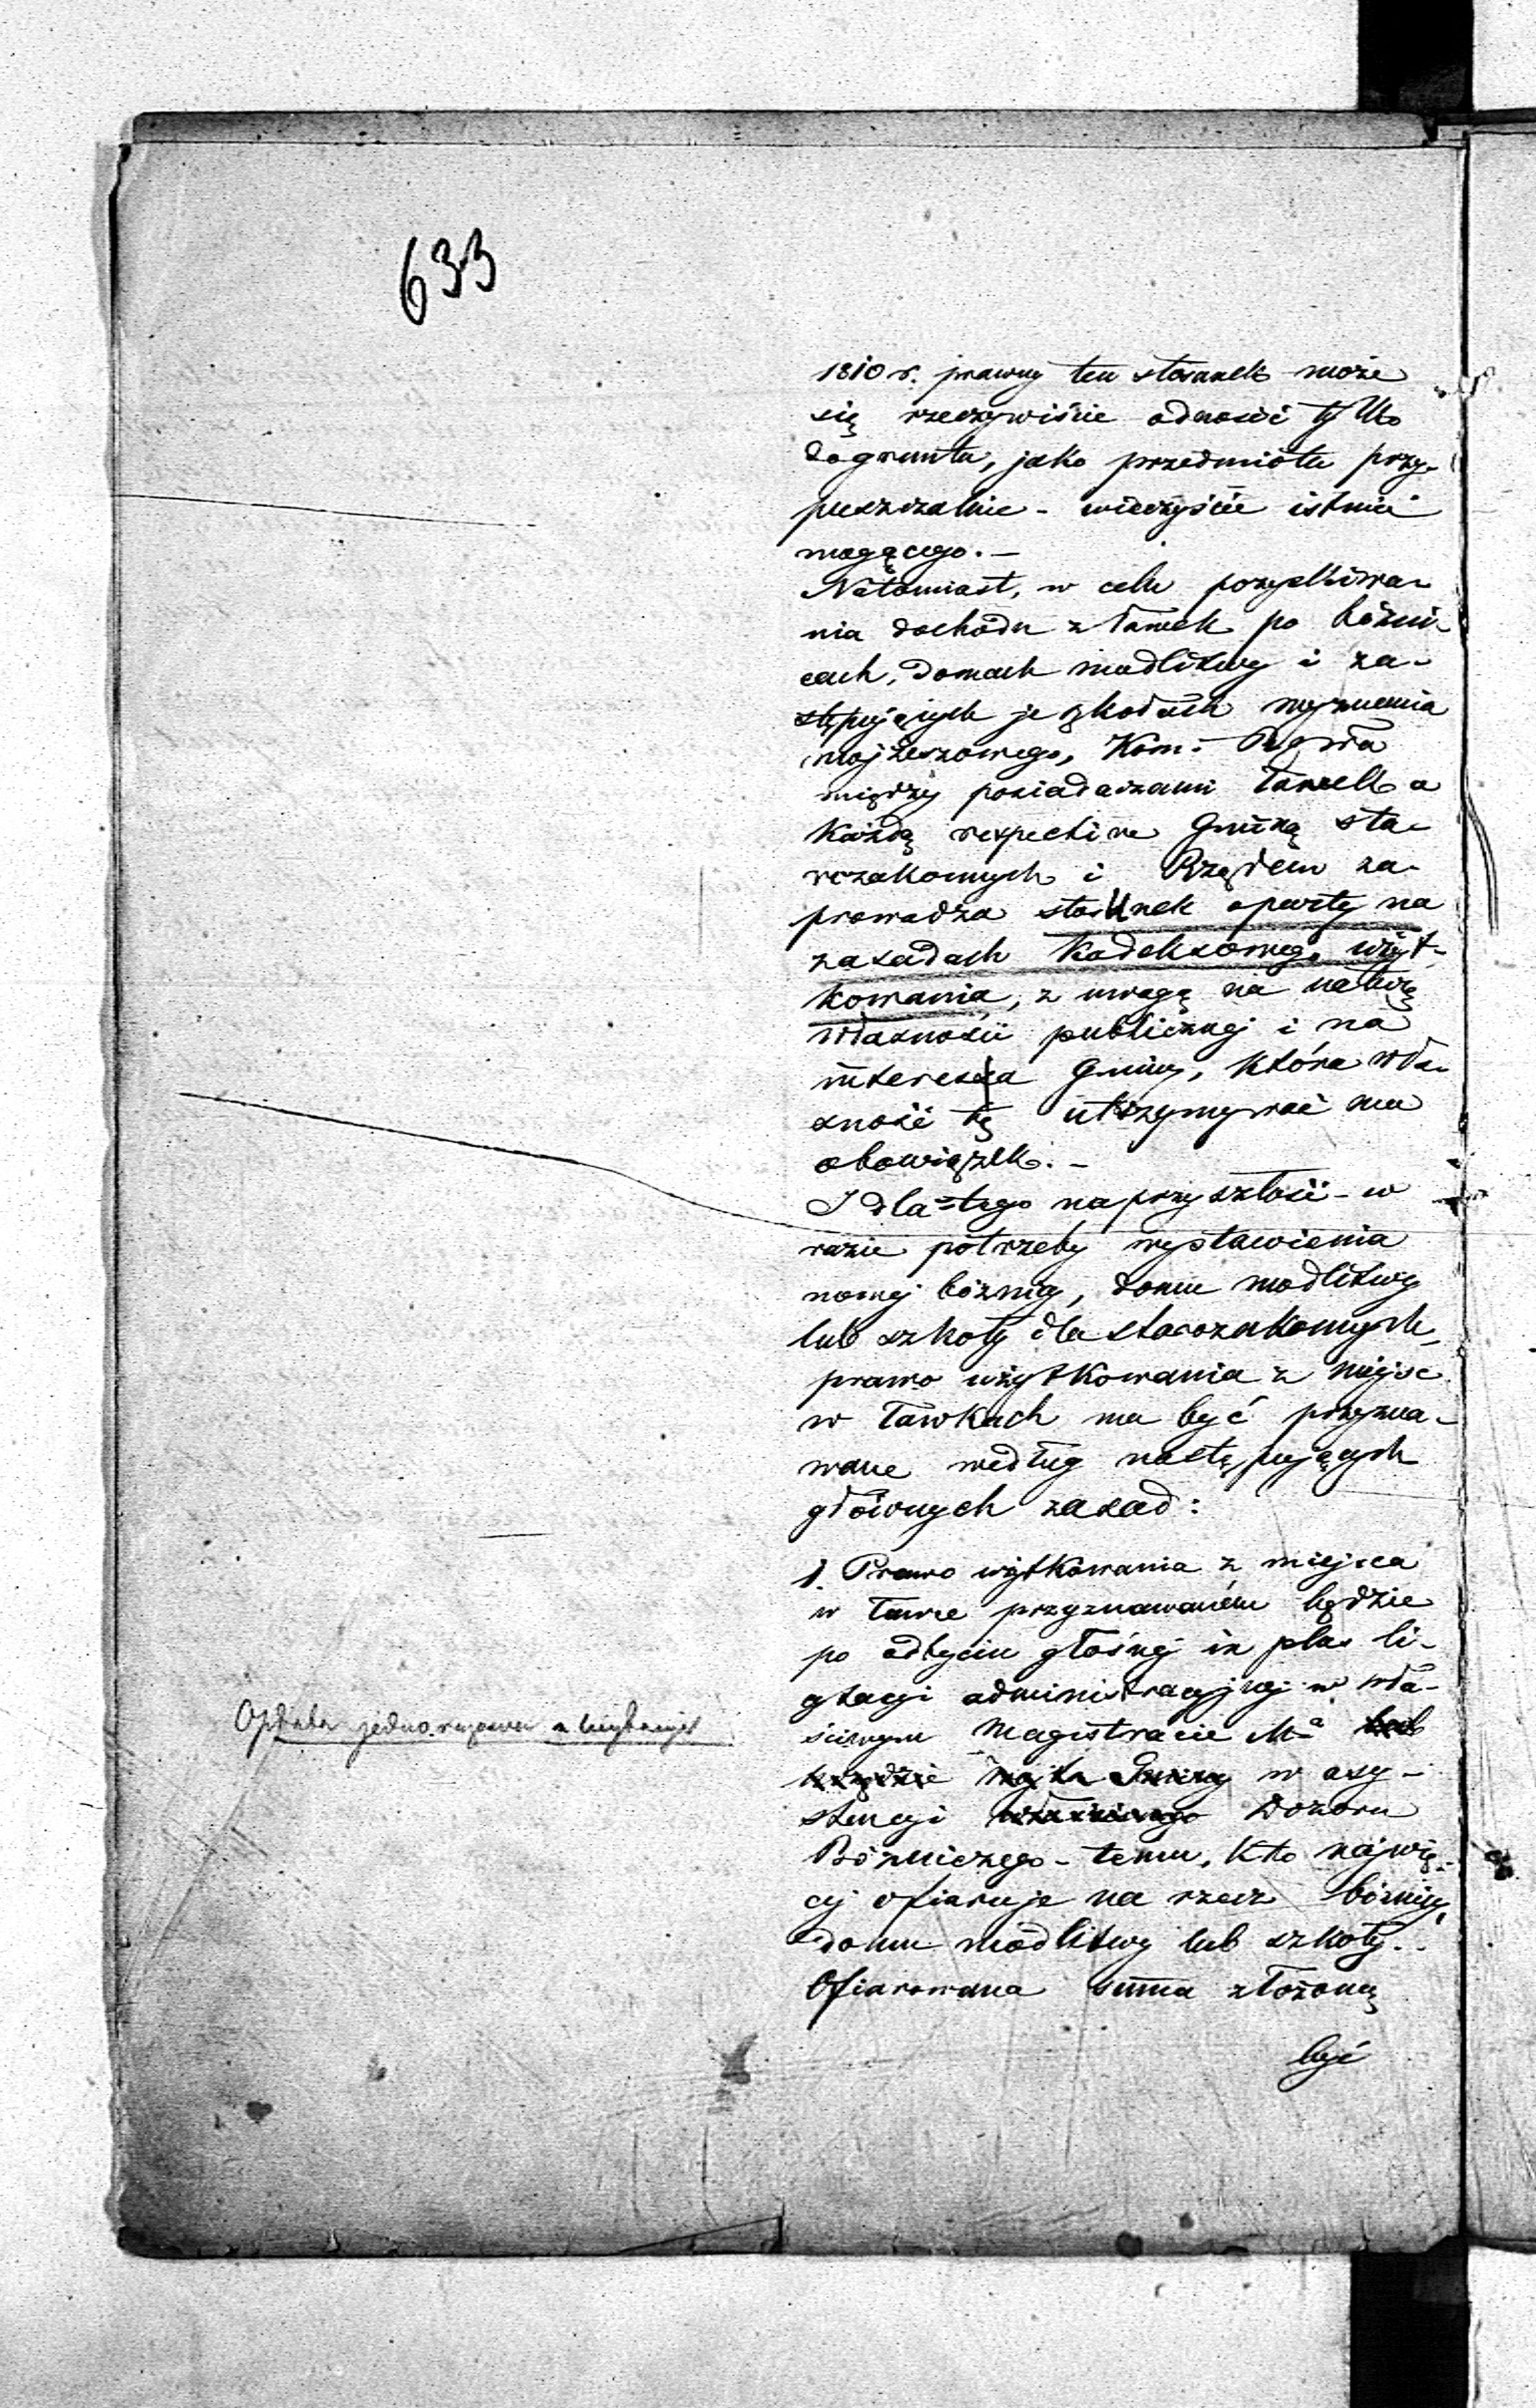 633
1810 r. prawny ten stosunek może
się rzeczywiście odnosić tylko
do gruntu, jako przedmiotu przy-
puszczalnie - wieczyście istnieć
mogącego. -
Natomiast, w celu pozyskiwa-
nia dochodu z ławek po bóżni-
cach, domach modlitwy i za-
stępujących je szkołach wyznania
mojżeszowego, Kom:
między posiadaczami ławek a
każdą respective Gminą sta-
rozakonnych i Rządem za-
prowadza stosunek oparty na
zasadach Kodeksowego użyt-
kowania, z uwagą na naturę
własności publicznej i na
interessa Gminy, która wła-
sność tę utrzymywać ma
obowiązek. -
I dla tego na przyszłość - w
razie potrzeby wystawienia
nowej bóżnicy, domu modlitwy
lub szkoły dla starozakonnych,
prawo użytkowania z miejsc
w ławkach ma być przyzna-
wane według następujących
głównych zasad:
1. Prawo użytkowania z miejsca
w ławce przyznawaném będzie
po odbyciu głośnej in plus li-
cytacji administracyjnej w wła-
ściwym Magistracie Mᵃ lub
Urzędzie Wójta Gminy w asy-
stencji właściwego Dozoru
Bóżniczego - temu, kto najwię-
cej ofiaruje na rzecz bóżnicy,
domu modlitwy lub szkoły.
Ofiarowana summa złożoną
być
Opłata jednorazowa z licytacyi